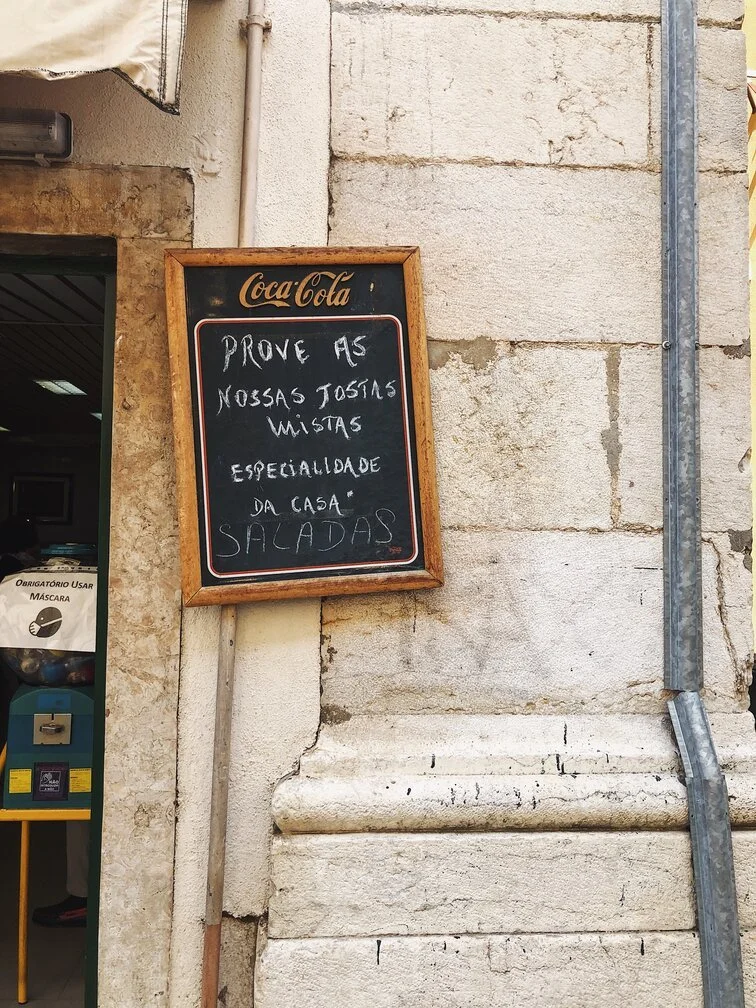 Coca-Cola
PROVE AS
NOSSAS TOSTAS
MISTAS
ESPECIALIDADE
DA CASA"
SALADAS
OBRIGATÓRIO USAR
MÁSCARA